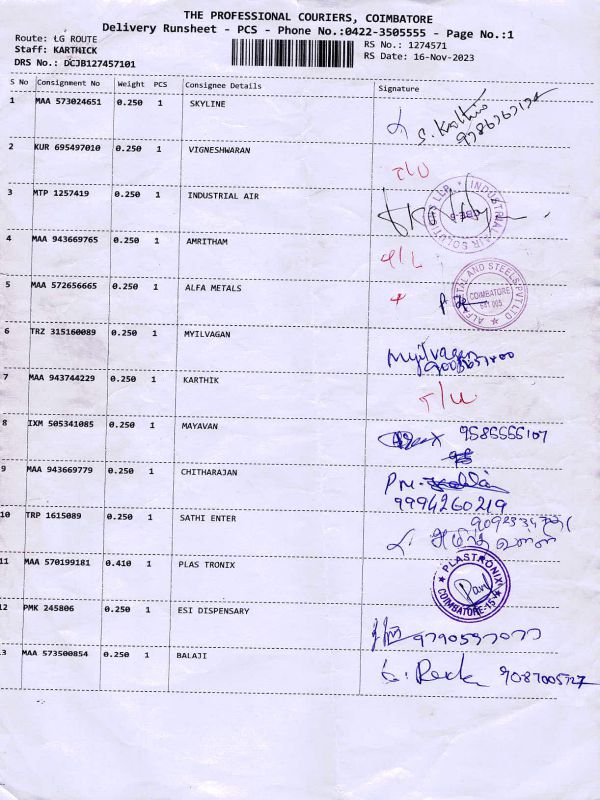 THE PROFESSIONAL COURIERS, COIMBATORE
Delivery Runsheet - PCS - Phone No.:0422-3505555 - Page No.:1
Route: LG ROUTE
Staff: KARTHICK
DRS No.: DCJB127457101
RS No.: 1274571
RS Date: 16-Nov-2023
S No Consignment No Weight PCS Consignee Details Signature
1 MAA 573024651 0.250 1 SKYLINE
S. Karthic
9786767124
2 KUR 695497010 0.250 1 VIGNESHWARAN
3 MTP 1257419 0.250 1 INDUSTRIAL AIR
INDUSTRIAL AIR SOLUTIONS LLP.
4 MAA 943669765 0.250 1 AMRITHAM
5 MAA 572656665 0.250 1 ALFA METALS
ALFA METAL AND STEELS PVT LTD
COIMBATORE
641 005
6 TRZ 315160089 0.250 1 MYILVAGAN
Myilvagan
7 MAA 943744229 0.250 1 KARTHIK
8 IXM 505341085 0.250 1 MAYAVAN
9585555107
9 MAA 943669779 0.250 1 CHITHARAJAN
9994260219
10 TRP 1615089 0.250 1 SATHI ENTER
11 MAA 570199181 0.410 1 PLAS TRONIX
PLASTRONIX
COIMBATORE-15
12 PMK 245806 0.250 1 ESI DISPENSARY
9790597077
13 MAA 573500854 0.250 1 BALAJI
9087005727